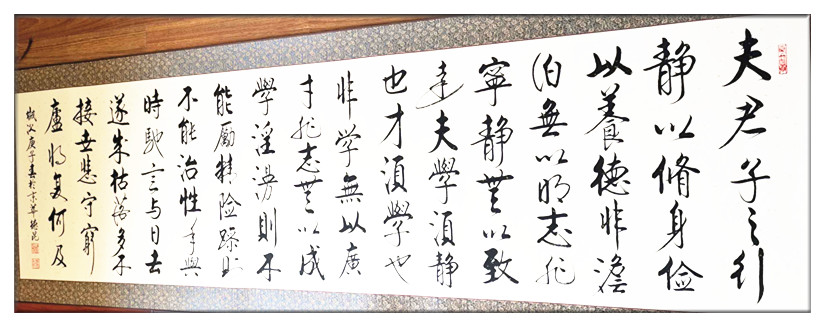 夫君子之行
静以脩身俭
以養德非澹
泊無以明志非
寧静無以致
遠夫學須静
也才須學也
非学無以廣
才非志無以成
學淫漫則不
能励精险躁则
不能治性年與
時馳意与日去
遂成枯落多不
接世悲守窮
廬将复何及
庚子春於京華